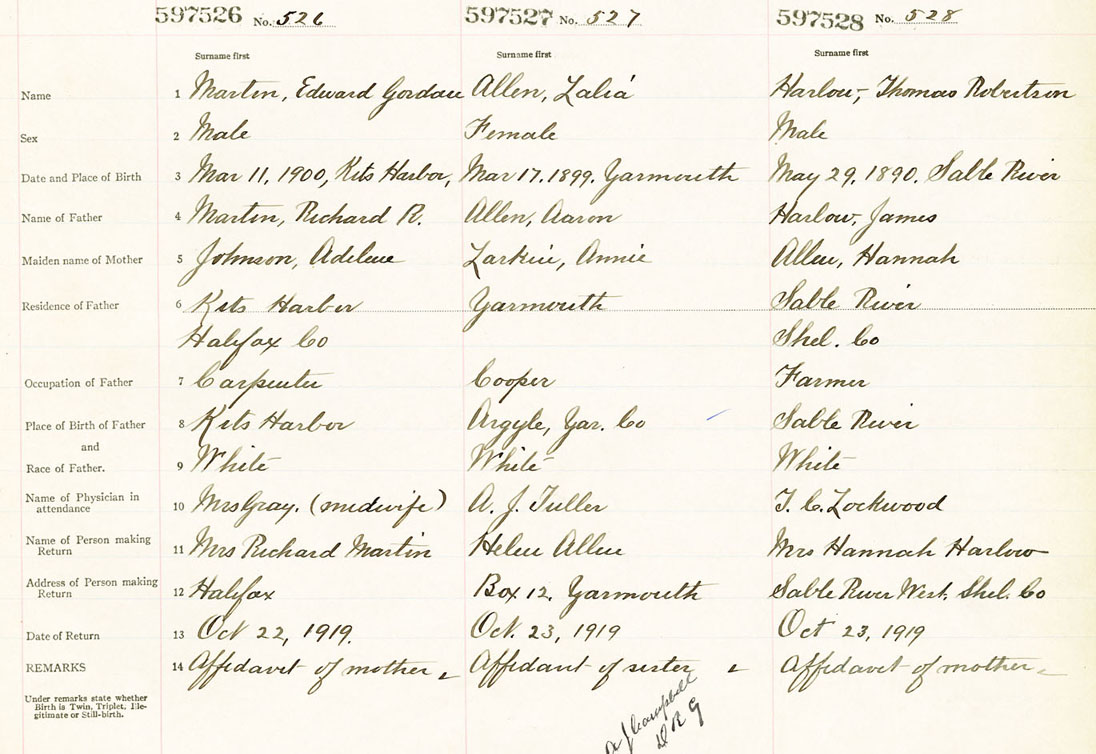 597526 No. 526 597527 No. 527 597528 No. 528
Surname first Surname first Surname first
Name 1 Martin, Edward Gordon Allen, Zalia Harlow, Thomas Robertson
Sex 2 Male Female Male
Date and Place of Birth 3 Mar 11, 1900, Kits Harbor, Mar 17. 1899. Yarmouth May 29, 1890. Sable River
Name of Father 4 Martin, Richard R. Allen, Aaron Harlow, James
Maiden name of Mother 5 Johnson, Adelene Larkin, Annie Allen, Hannah
Residence of Father 6 Kits Harbor Yarmouth Sable River
Halifax Co Shel. Co
Occupation of Father 7 Carpenter Cooper Farmer
Place of Birth of Father 8 Kits Harbor Argyle, Yar. Co Sable River
and
Race of Father. 9 White White White
Name of Physician in
attendance 10 Mrs Gray. (midwife) A. J. Fuller T. C. Lockwood
Name of Person making
Return 11 Mrs Richard Martin Helen Allen Mrs Hannah Harlow
Address of Person making
Return 12 Halifax Box 12, Yarmouth Sable River West. Shel. Co
Date of Return 13 Oct 22, 1919. Oct. 23, 1919 Oct 23, 1919
REMARKS 14 Affidavit of mother Affidavit of sister Affidavit of mother
Under remarks state whether
Birth is Twin, Triplet, Ille-
gitimate or Still-birth.
Campbell
D R G